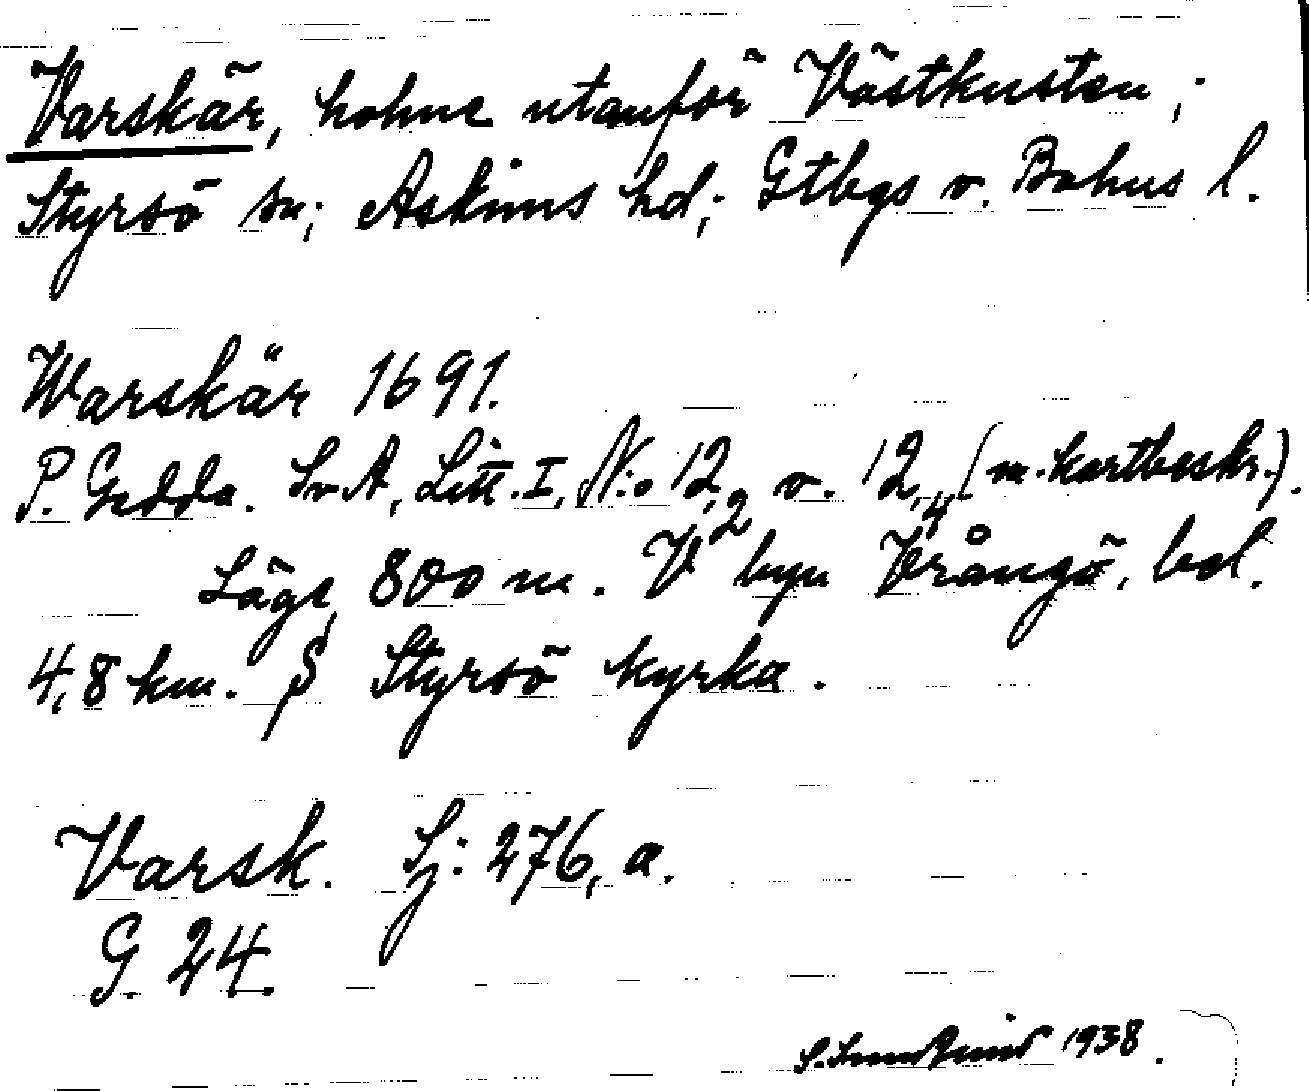 Varskär, holme utanför Västkusten;
Styrsö sn; Askims hd; Gtbgs o. Bohus l.
Warskär 1691.
P. Gedda. Sv. A, Litt. I, N:o 12,2 o. 12,4 (m. kartbeskr.).
Läge, 800 m. V byn Vrångö, bel.
4,8 km. S Styrsö kyrka.
Varsk. Sj: 276, a.
G. 24.
1938.